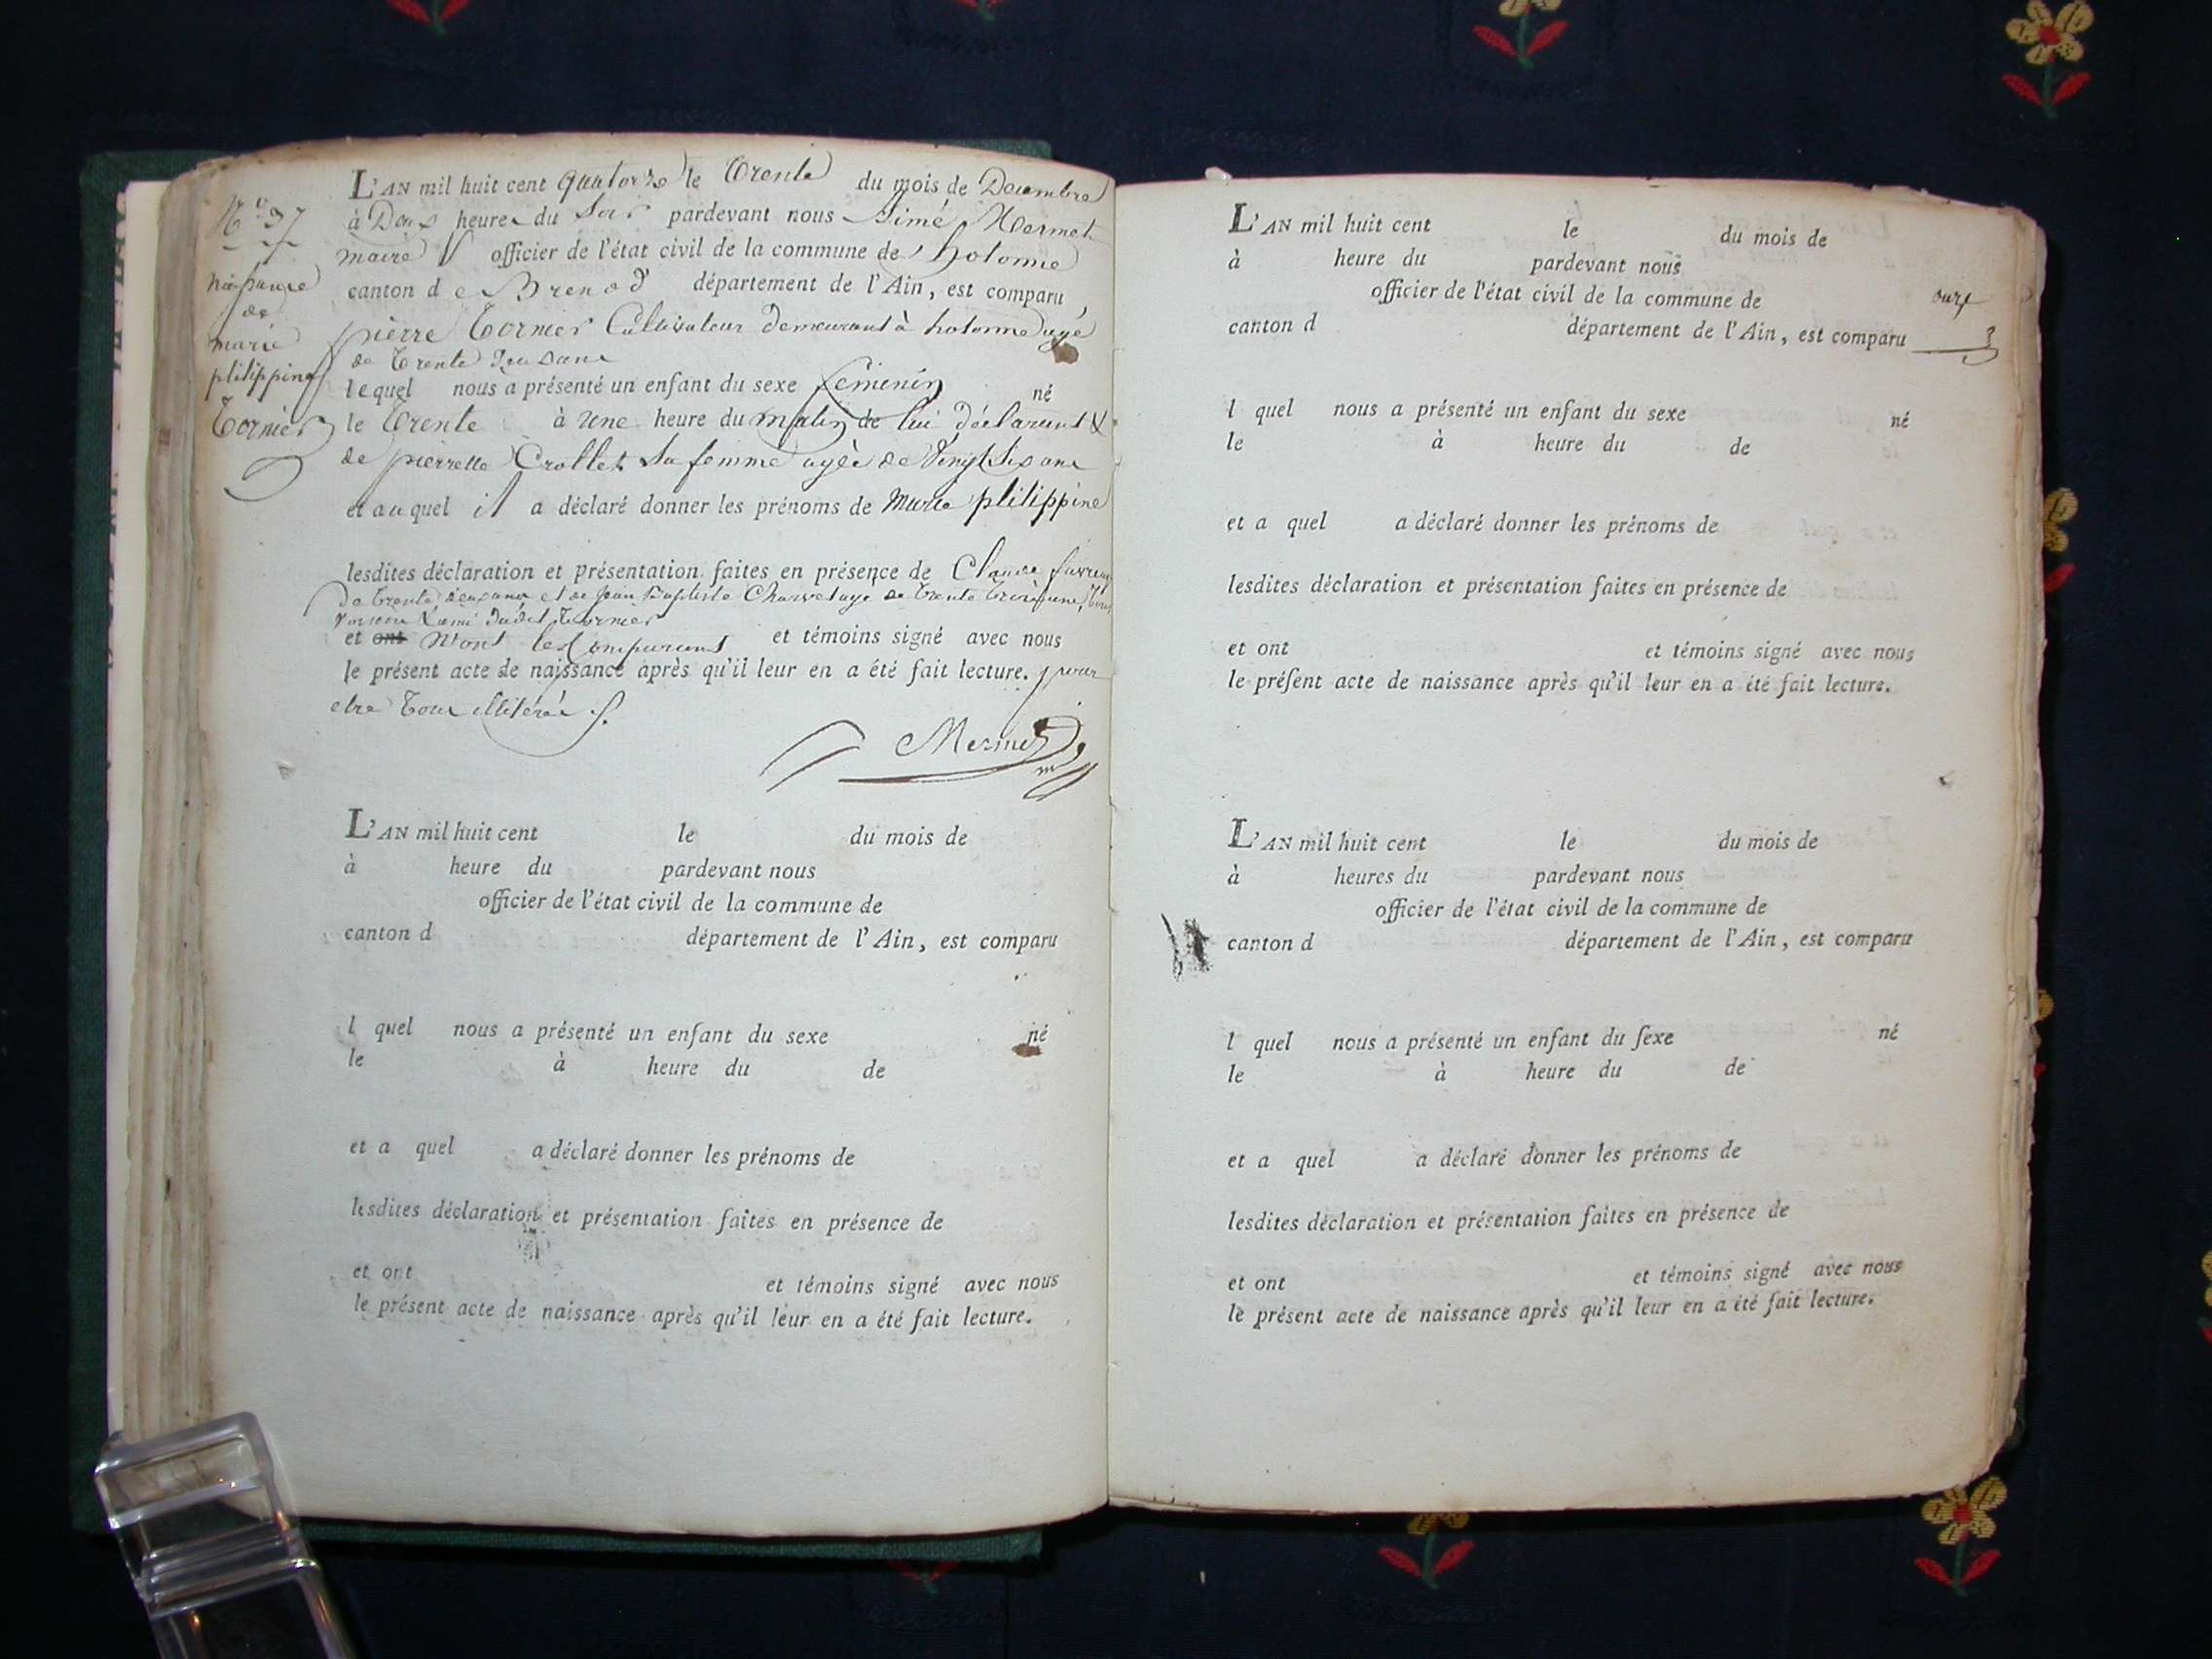 N.° 37
naissance
de
marie
plilippine
Tornier
L'AN mil huit cent quatorze le Trente du mois de Decembre
à Deux heures du soir pardevant nous Aimé Mermet
maire officier de l'état civil de la commune de hotonne
canton de Brenod département de l'Ain, est comparu
pierre Tornier Cultivateur demeurant à hotonne agé
de Trente deux ans
lequel nous a présenté un enfant du sexe femenin né
le Trente à une heure du matin de lui déclarant &
de pierrette Crollet sa femme agée de vingt six ans
et auquel il a déclaré donner les prénoms de marie plilippine
lesdites déclaration et présentation faites en présence de Claude
de Trente deux ans et de jean Baptiste Charvet agé de Trente Trois ans,
dudit Tornier
et ont n'ont les Comparants et témoins signé avec nous
le présent acte de naissance après qu'il leur en a été fait lecture. pour
etre Tous illiterés.
Mermet
L'AN mil huit cent le du mois de
à heure du pardevant nous
officier de l'état civil de la commune de
canton d département de l'Ain, est comparu
l quel nous a présenté un enfant du sexe né
le à heure du de
et a quel a déclaré donner les prénoms de
lesdites déclaration et présentation faites en présence de
et ont et témoins signé avec nous
le présent acte de naissance après qu'il leur en a été fait lecture.
L'AN mil huit cent le du mois de
à heure du pardevant nous
officier de l'état civil de la commune de
onze
canton d département de l'Ain, est comparu
l quel nous a présenté un enfant du sexe né
le à heure du de
et a quel a déclaré donner les prénoms de
lesdites déclaration et présentation faites en présence de
et ont et témoins signé avec nous
le préſent acte de naissance après qu'il leur en a été fait lecture.
L'AN mil huit cent le du mois de
à heures du pardevant nous
officier de l'état civil de la commune de
canton d département de l'Ain, est comparu
l quel nous a présenté un enfant du ſexe né
le à heure du de
et a quel a déclaré donner les prénoms de
lesdites déclaration et présentation faites en présence de
et ont et témoins signé avec nous
le présent acte de naissance après qu'il leur en a été fait lecture.